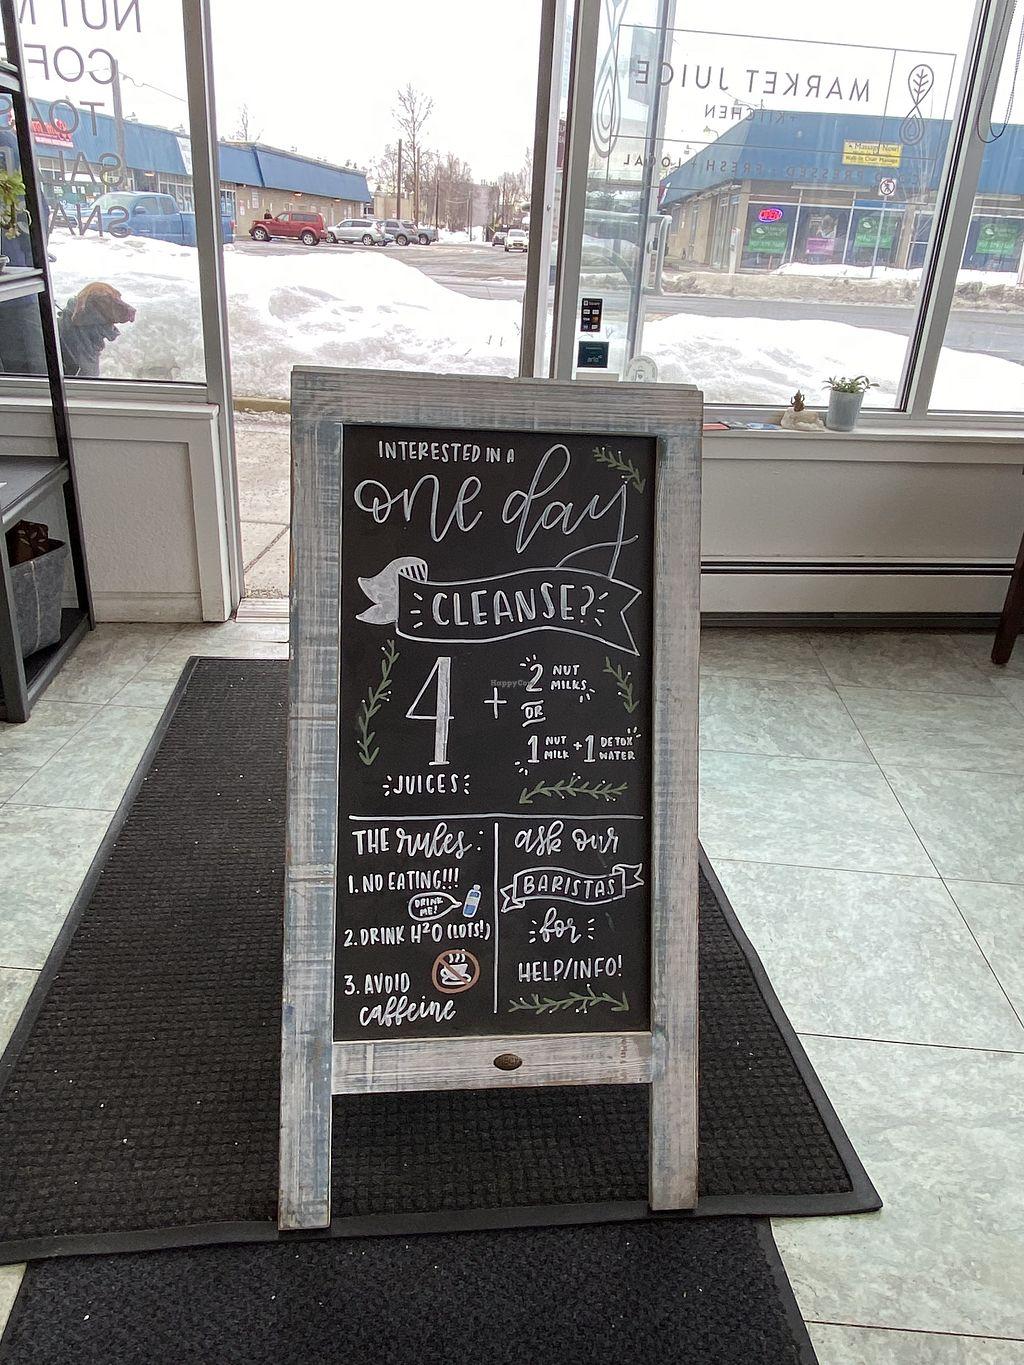 NUT M
COF
TOAS
SAL
SNA
MARKET JUICE
+ KITCHEN
PRESSED + FRESH + LOCAL
Massage Now!
Walk-in Chair Massage
OPEN
INTERESTED IN A
one day
CLEANSE?
4 + 2 NUT MILKS
OR
1 NUT MILK + 1 DETOX WATER
JUICES
THE rules:
1. NO EATING!!!
DRINK ME!
2. DRINK H²O (LOTS!)
3. AVOID
caffeine
ask our
BARISTAS
for
HELP/INFO!
HappyCow